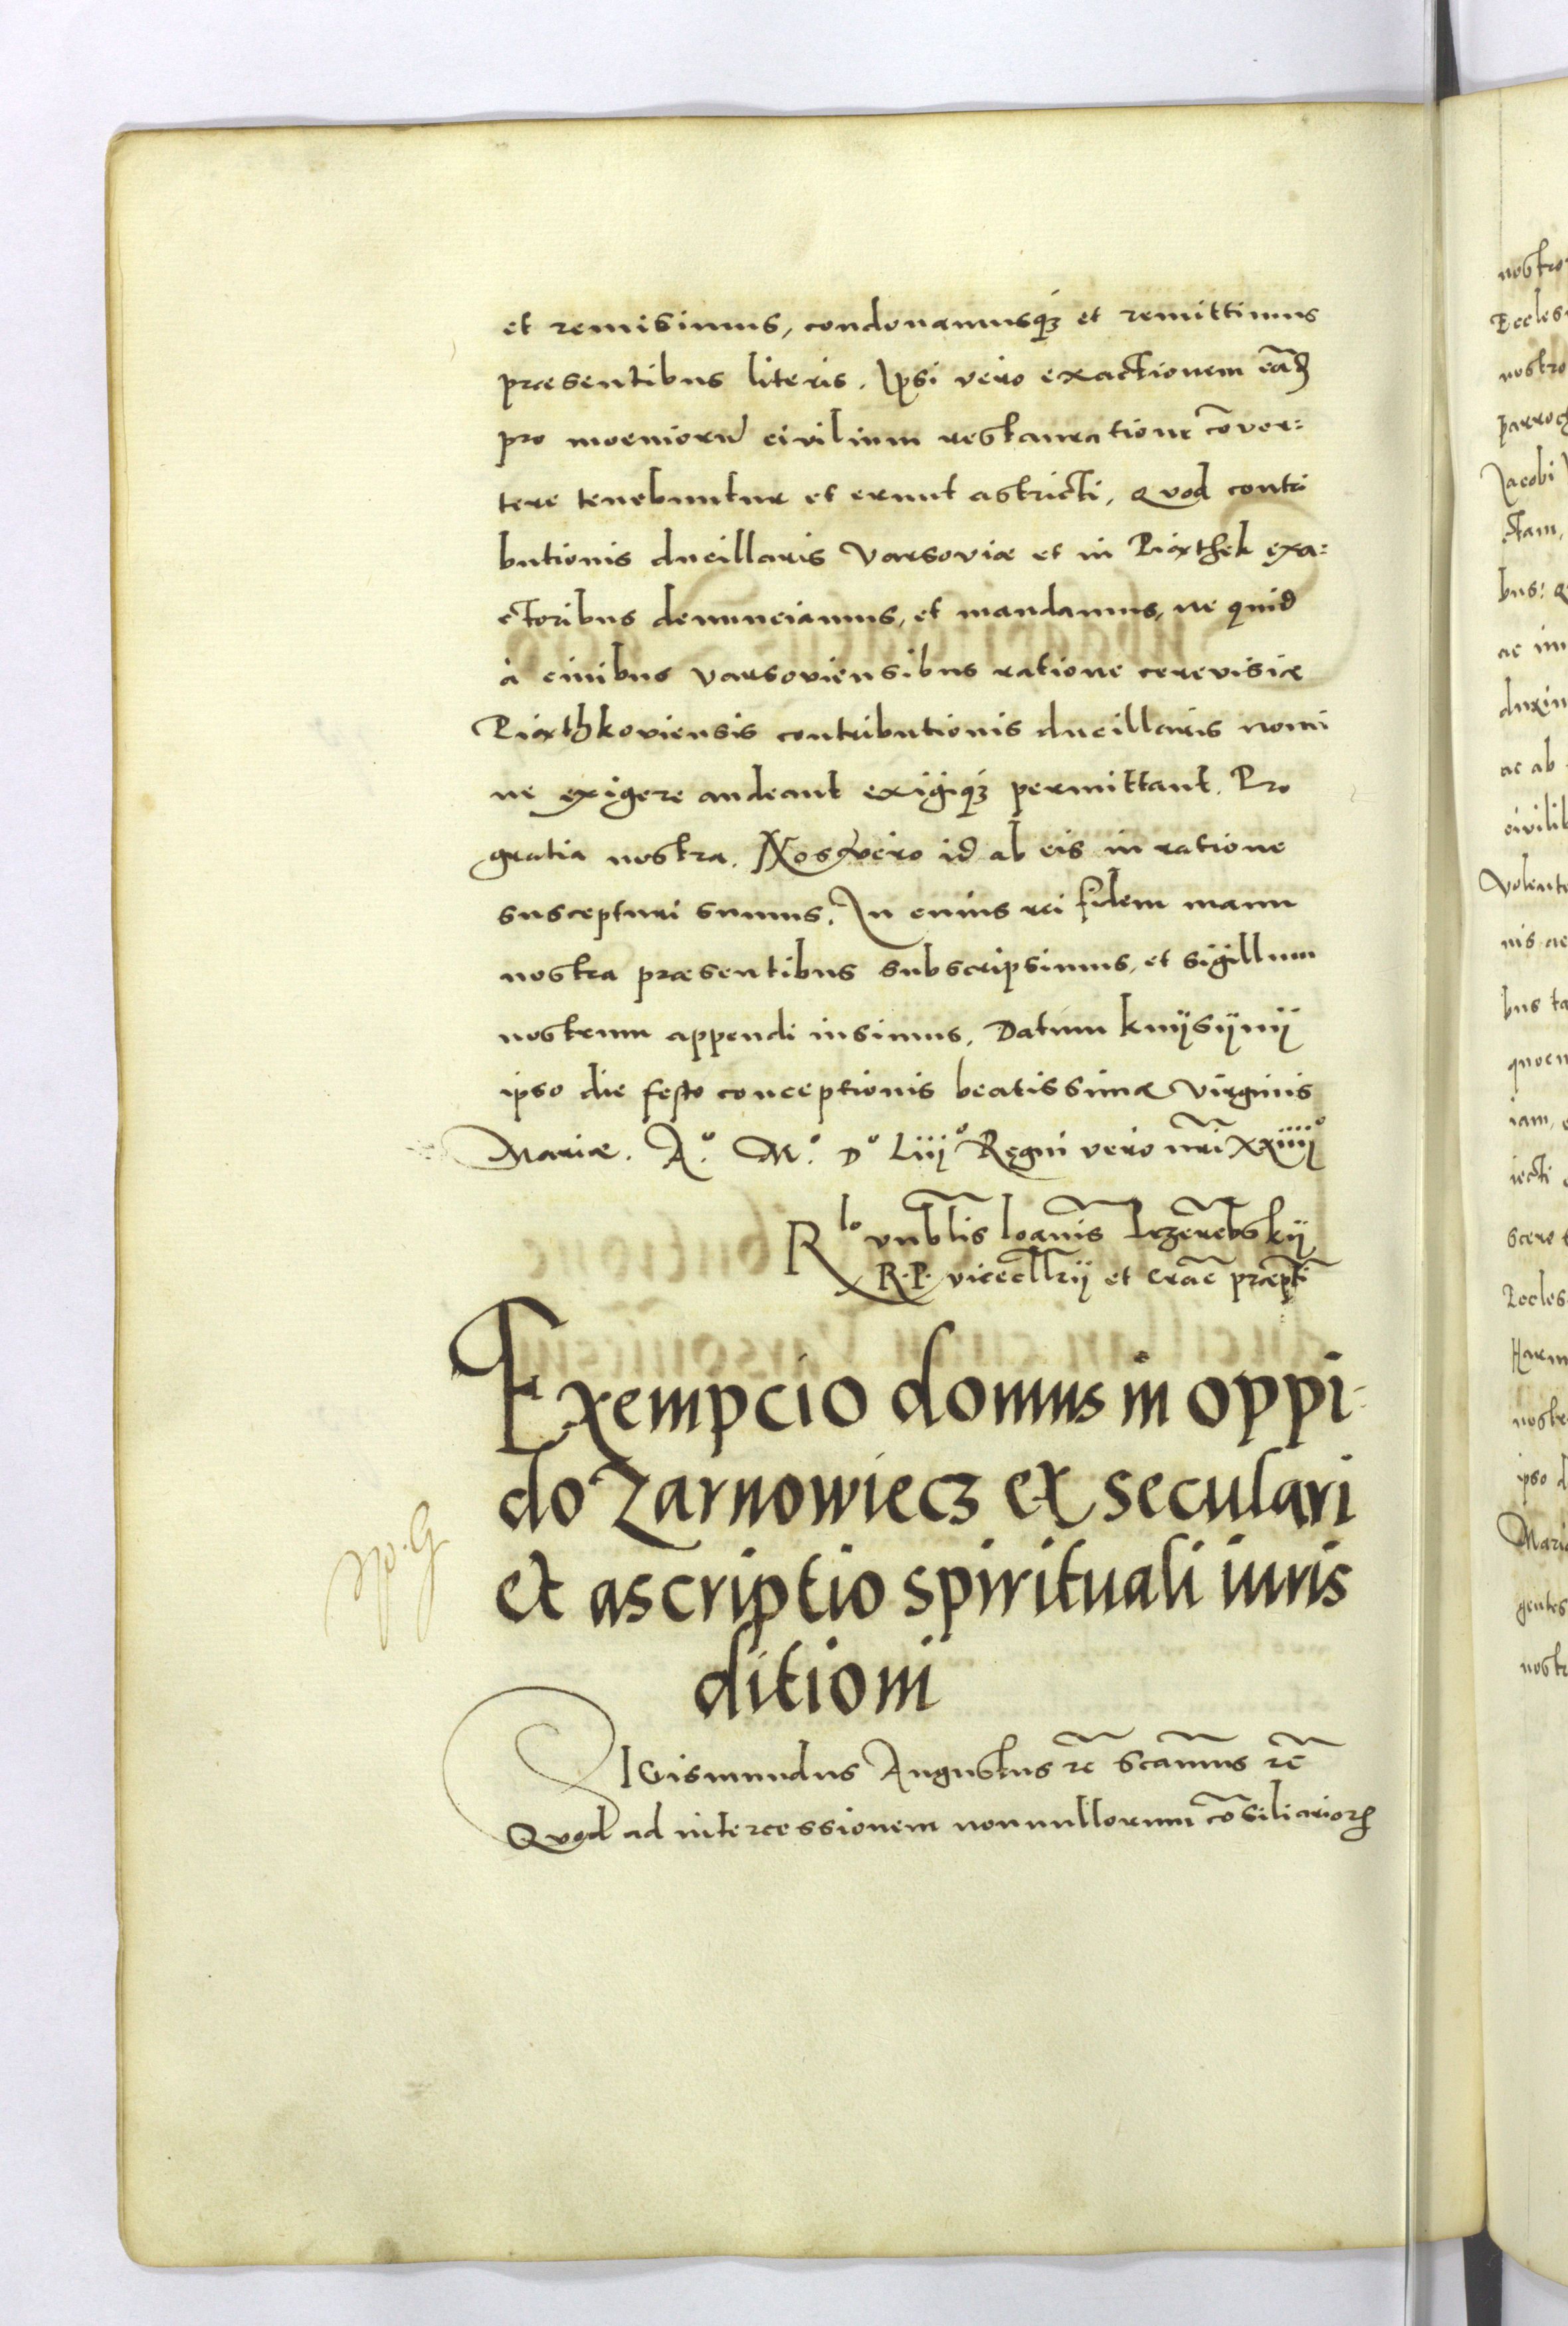 et remisimus, condonamusq₃ et remittimus
præsentibus literis. Ipsi vero exactionem eãd
pro moeniorũ civilium restauratione cõver=
tere tenebuntur et erunt astricti. Quod contri
butionis ducillaris Varsoviæ et in Piąthek exa=
ctoribus denunciamus, et mandamus, ne quid
à ciuibus varsoviensibus ratione cerevisiæ
Piąthkoviensis contributionis ducillaris nomi
ne exigere audeant exigiq₃ permittant. Pro
gratia nostra. Nos vero id ab eis in ratione
suscepturi sumus. In cuius rei fidem manu
nostra præsentibus subscripsimus, et sigillum
nostrum appendi iusimus. Datum knijsijnij
ipso die festo conceptionis beatissimæ virginis
Mariæ. A.º M.º Dº Liijº Regni vero nr̃i xxiiijº
Rlo vnblis Ioañis
R. P. vicecllrij et
Exempcio domus in oppi-
do Zarnowiecz ex seculari
et ascriptio spirituali iuris
ditioni
SIGismundus Augustus rẽ Scamus rẽ
Quod ad intercessionem nonnullorum cõsiliarioꝝ
nostro
Eccles
nostro
parroc
Jacobi
ctam,
bus: Q
ac im
duxim
ac ab
civilib
volent
nis ac
bus ta
iam,
iecti
scere
Eccles
nostr
ipso d
Mari
gentes
nostr